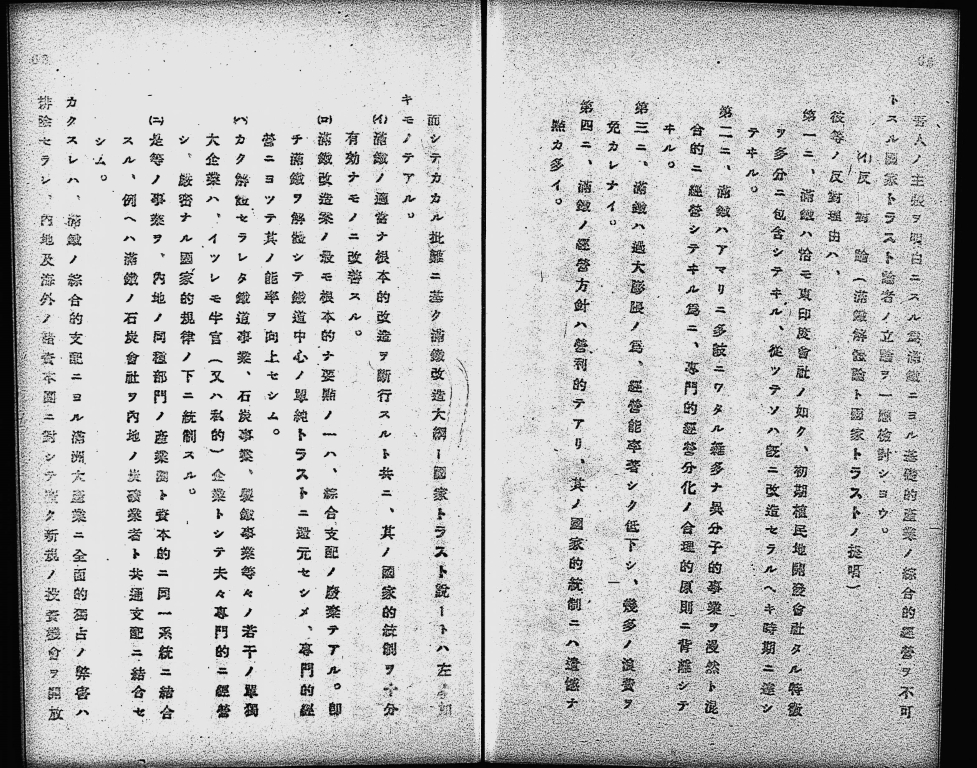 吾人ノ主張ヲ明白ニスル爲滿鐵ニヨル基礎的產業ノ綜合的經營ヲ不可
トスル國家トラスト論者ノ立論ヲ一應檢討シヨウ。
(イ)反對論（滿鐵解體論ト國家トラストノ提唱）
彼等ノ反對理由ハ、
第一ニ、滿鐵ハ恰モ東印度會社ノ如ク、初期植民地開發會社タル特徵
ヲ多分ニ包含シテヰル、從ツテソハ既ニ改造セラルヘキ時期ニ達シ
テヰル。
第二ニ、滿鐵ハアマリニ多岐ニワタル雜多ナ異分子的事業ヲ漫然ト混
合的ニ經營シテヰル爲ニ、專門的經營分化ノ合理的原則ニ背離シテ
ヰル。
第三ニ、滿鐵ハ過大膨脹ノ爲、經營能率著シク低下シ、幾多ノ浪費ヲ
免カレナイ。
第四ニ、滿鐵ノ經營方針ハ營利的テアリ、其ノ國家的統制ニハ遺憾ナ
點カ多イ。
而シテカカル批難ニ基ク滿鐵改造大綱ー國家トラスト說ートハ左ノ如
キモノテアル。
(イ)滿鐵ノ適當ナ根本的改造ヲ斷行スルト共ニ、其ノ國家的統制ヲ十分
有効ナモノニ改善スル。
(ロ)滿鐵改造案ノ最モ根本的ナ要點ノ一ハ、綜合支配ノ廢棄テアル。卽
チ滿鐵ヲ解體シテ鐵道中心ノ單純トラストニ還元セシメ、專門的經
營ニヨツテ其ノ能率ヲ向上セシム。
(ハ)カク解體セラレタ鐵道事業、石炭事業、製鐵事業等々ノ若干ノ單獨
大企業ハ、イツレモ半官（又ハ私的）企業トシテ夫々專門的ニ經營
シ、嚴密ナル國家的規律ノ下ニ統制スル。
(ニ)是等ノ事業ヲ、內地ノ同種部門ノ產業團ト資本的ニ同一系統ニ結合
スル、例ヘハ滿鐵ノ石炭會社ヲ內地ノ炭礦業者ト共通支配ニ結合セ
シム。
カクスレハ、滿鐵ノ綜合的支配ニヨル滿洲大產業ニ全面的獨占ノ弊害ハ
排除セラレ、內地及海外ノ諸資本團ニ對シテ廣ク新規ノ投資機會ヲ開放